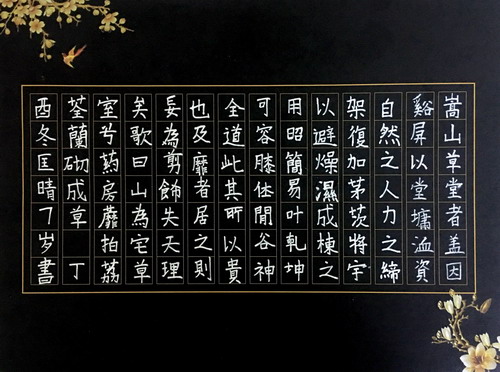 嵩山草堂者盖因
谿屏以堂墉洫資
自然之人力之締
架復加茅茨將宇
以避燥濕成棟之
用昭簡易叶軋坤
可容膝休閒谷神
全道此其所以貴
也及靡者居之則
妄為剪飾失天理
矣歌曰山為宅草
室兮葯房蘼拍荔
荃蘭砌成草 丁
酉冬匡晴7岁書